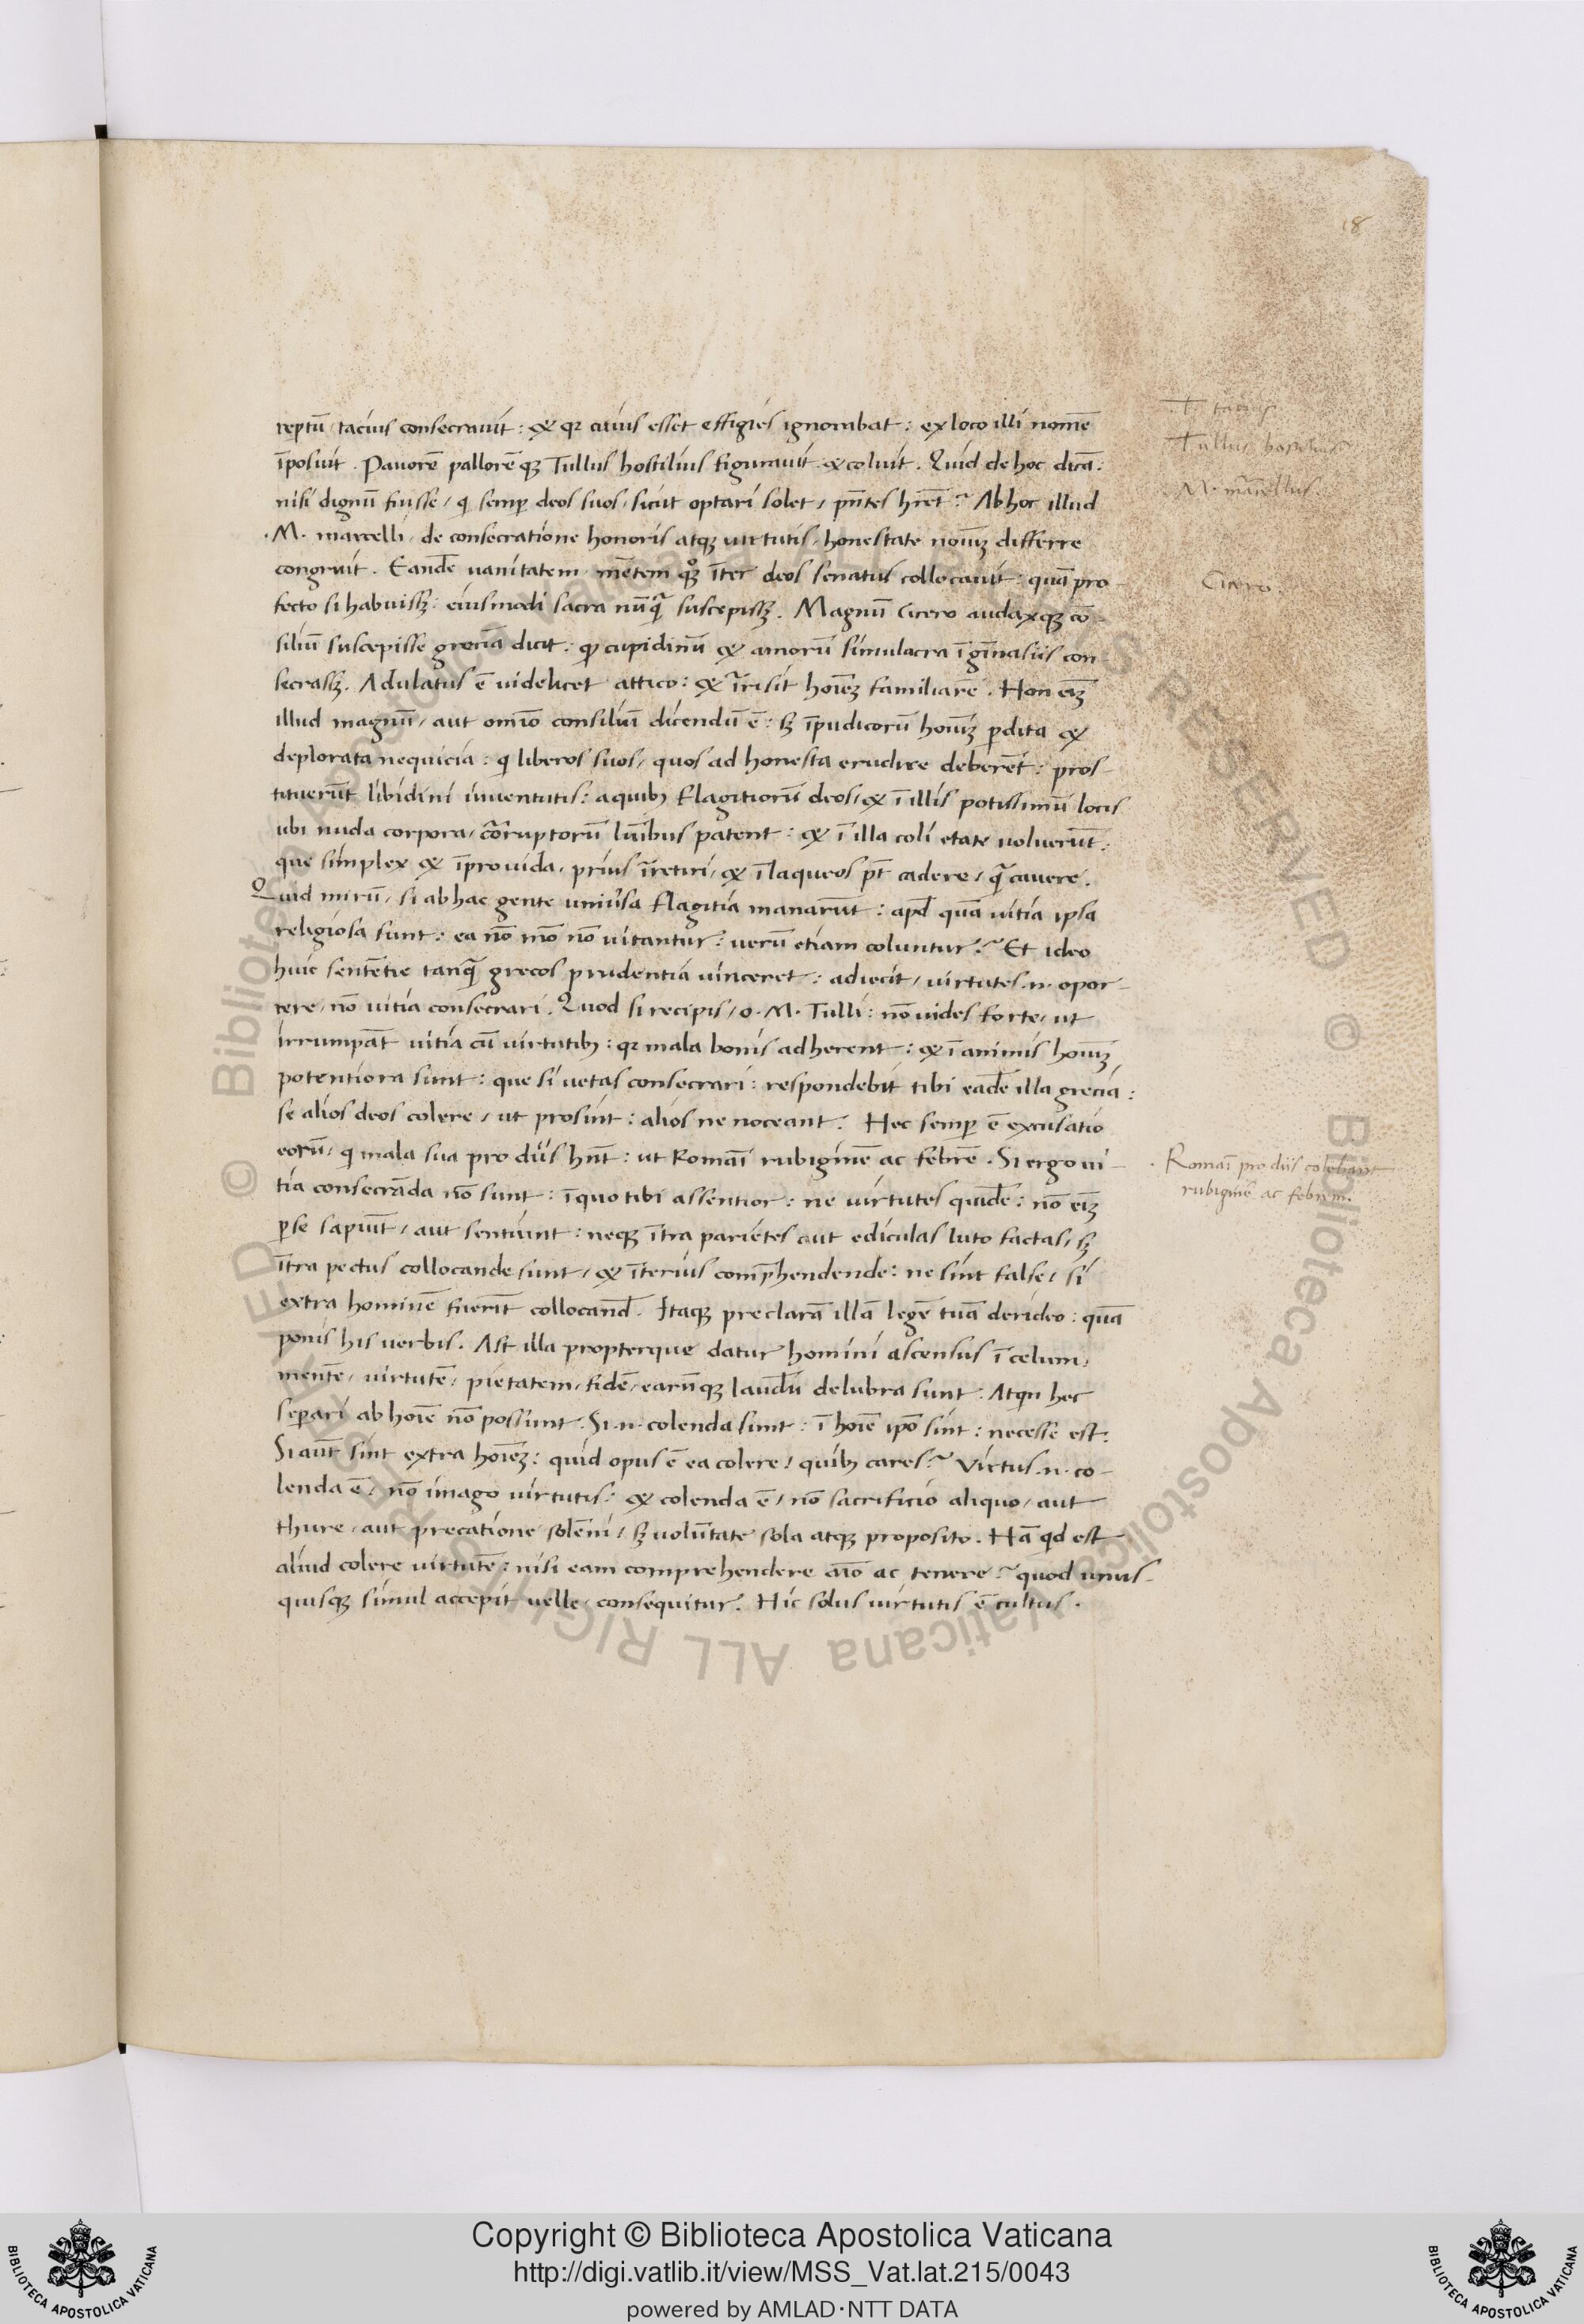 18
reptū / tacius consecrauit : & qr cuius esset effigies ignorabat : ex loco illi nomē
īposuit . Pauorē pallorē q; Tullus hostilius figurauit & coluit . Quid de hoc dicā :
nisi dignū fuisse / qi semp deos suos / sicut optari solet / pn̄tes hr̄et ? Ab hoc illud
M . marcelli / de consecratione honoris atq; uirtutis / honestate noīuz differre
congruit . Eandē uanitatem mētem qz īter deos senatus collocauit : quā pro-
fecto si habuisz : eiusmodi sacra nūqa suscepisz . Magnū Cicero audaxq; cō-
siliū suscepisse greciā dicit : qꝫ cupidinū & amorū simulacra ī gīnasiis con-
secrasz . Adulatus ē uidelicet attico : & irrisit hoīez familiarē . Non eīz
illud magnū / aut omīo consiliū dicendū ē : sz īpudicorū hoīuz pdita &
deplorata nequicia : qi liberos suos / quos ad honesta erudire deberēt : pros-
tituerūt libidini iuuentutis : a quibz flagitiorū deos / & ī illis potissimū locis
ubi nuda corpora / corruptorū luībus patent : & ī illa coli etate uoluerūt :
que simplex & īprouida / prius irretiri / & ī laqueos pt̄ cadere / qa cauere .
Quid mirū / si ab hac gente uniuersa flagitia manarūt : apd quā uitia ipsa
religiosa sunt : ea nō mō nō uitantur : uerū etiam coluntur ? Et ideo
huic sentētie tanqa grecos prudentia uinceret : adiecit / uirtutes .n. opor-
tere / nō uitia consecrari . Quod si recipis / o . M . Tulli : nō uides forte / ut
irrumpāt uitia cū uirtutibz : qr mala bonis adherent : & ī animis hoīuz
potentiora sunt : que si uetas consecrari : respondebit tibi eadē illa grecia :
se alios deos colere / ut prosint : alios ne noceant . Hec semp ē excusatio
eorū / qi mala sua pro diis hn̄t : ut Romaī rubiginē ac febrē . Si ergo ui-
tia consecrāda nō sunt : ī quo tibi assentior : ne uirtutes quidē : nō eīz
p se sapiūt / aut sentiunt : neq; ītra parietes aut ediculas luto factas / sz
ītra pectus collocande sunt / & īterius comphendende : ne sint false / si
extra hominē fuerīt collocand̄ . Itaq; preclarā illā legē tuā derideo : quā
ponis his uerbis . Ast illa propterque datur homini ascensus ī celum /
mentē / uirtutē / pietatem / fidē / earūq; laudū delubra sunt . Atqui hec
separi ab hoīe nō possunt . Si .n. colenda sunt : ī hoīe ipō sint : necesse est .
Si aut sint extra hoīez : quid opus ē ea colere / quibz cares ? Virtus .n. co-
lenda ē / nō imago uirtutis : & colenda ē / nō sacrificio aliquo / aut
thure / aut precatione solēni / sz uolūtate sola atq; proposito . Nā qid est
aliud colere uirtutē : nisi eam comprehendere aīo ac tenere ? quod unus-
quisq; simul accepit uelle / consequitur . Hic solus uirtutis ē cultus .
T. tacius
Tullus hostilius
M . marcellus
Cicero
Romaī pro diis colebant
rubiginē ac febrem .
© Biblioteca Apostolica Vaticana ALL RIGHTS RESERVED
BIBLIOTECA APOSTOLICA VATICANA
Copyright © Biblioteca Apostolica Vaticana
http://digi.vatlib.it/view/MSS_Vat.lat.215/0043
powered by AMLAD·NTT DATA
BIBLIOTECA APOSTOLICA VATICANA